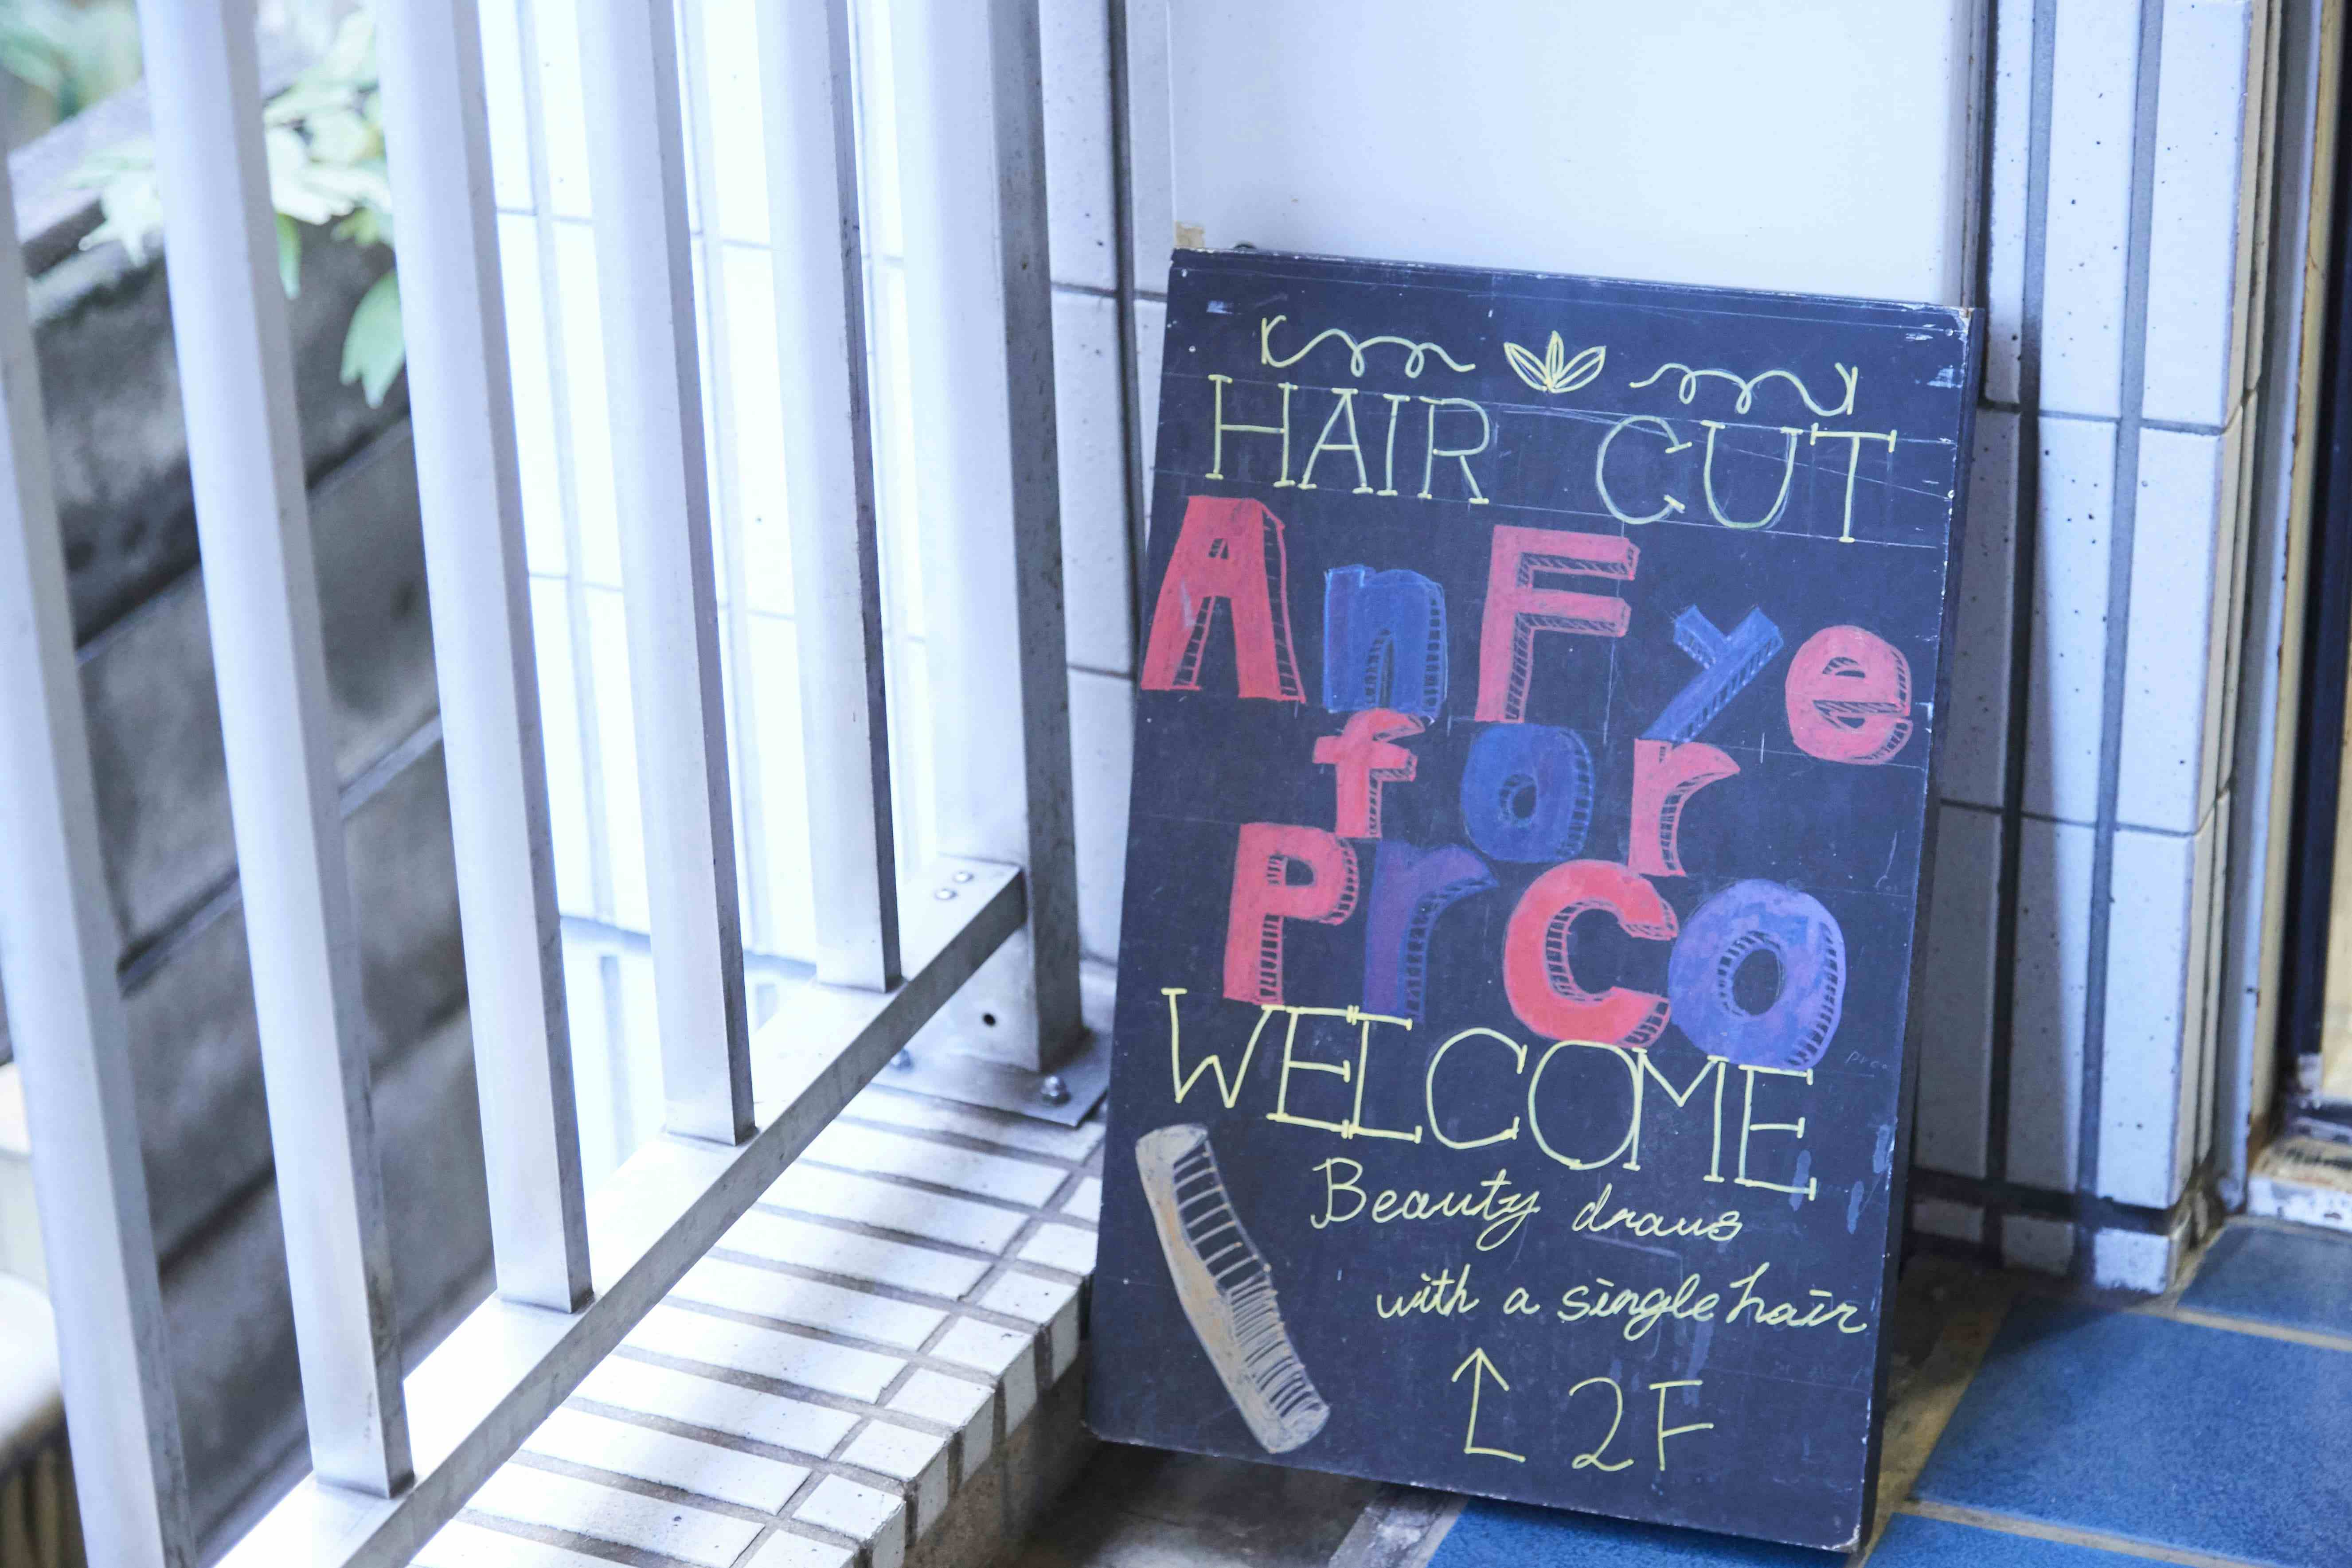 HAIR CUT
AnFye
for
Prco
WELCOME
Beauty draws
with a single hair
2F